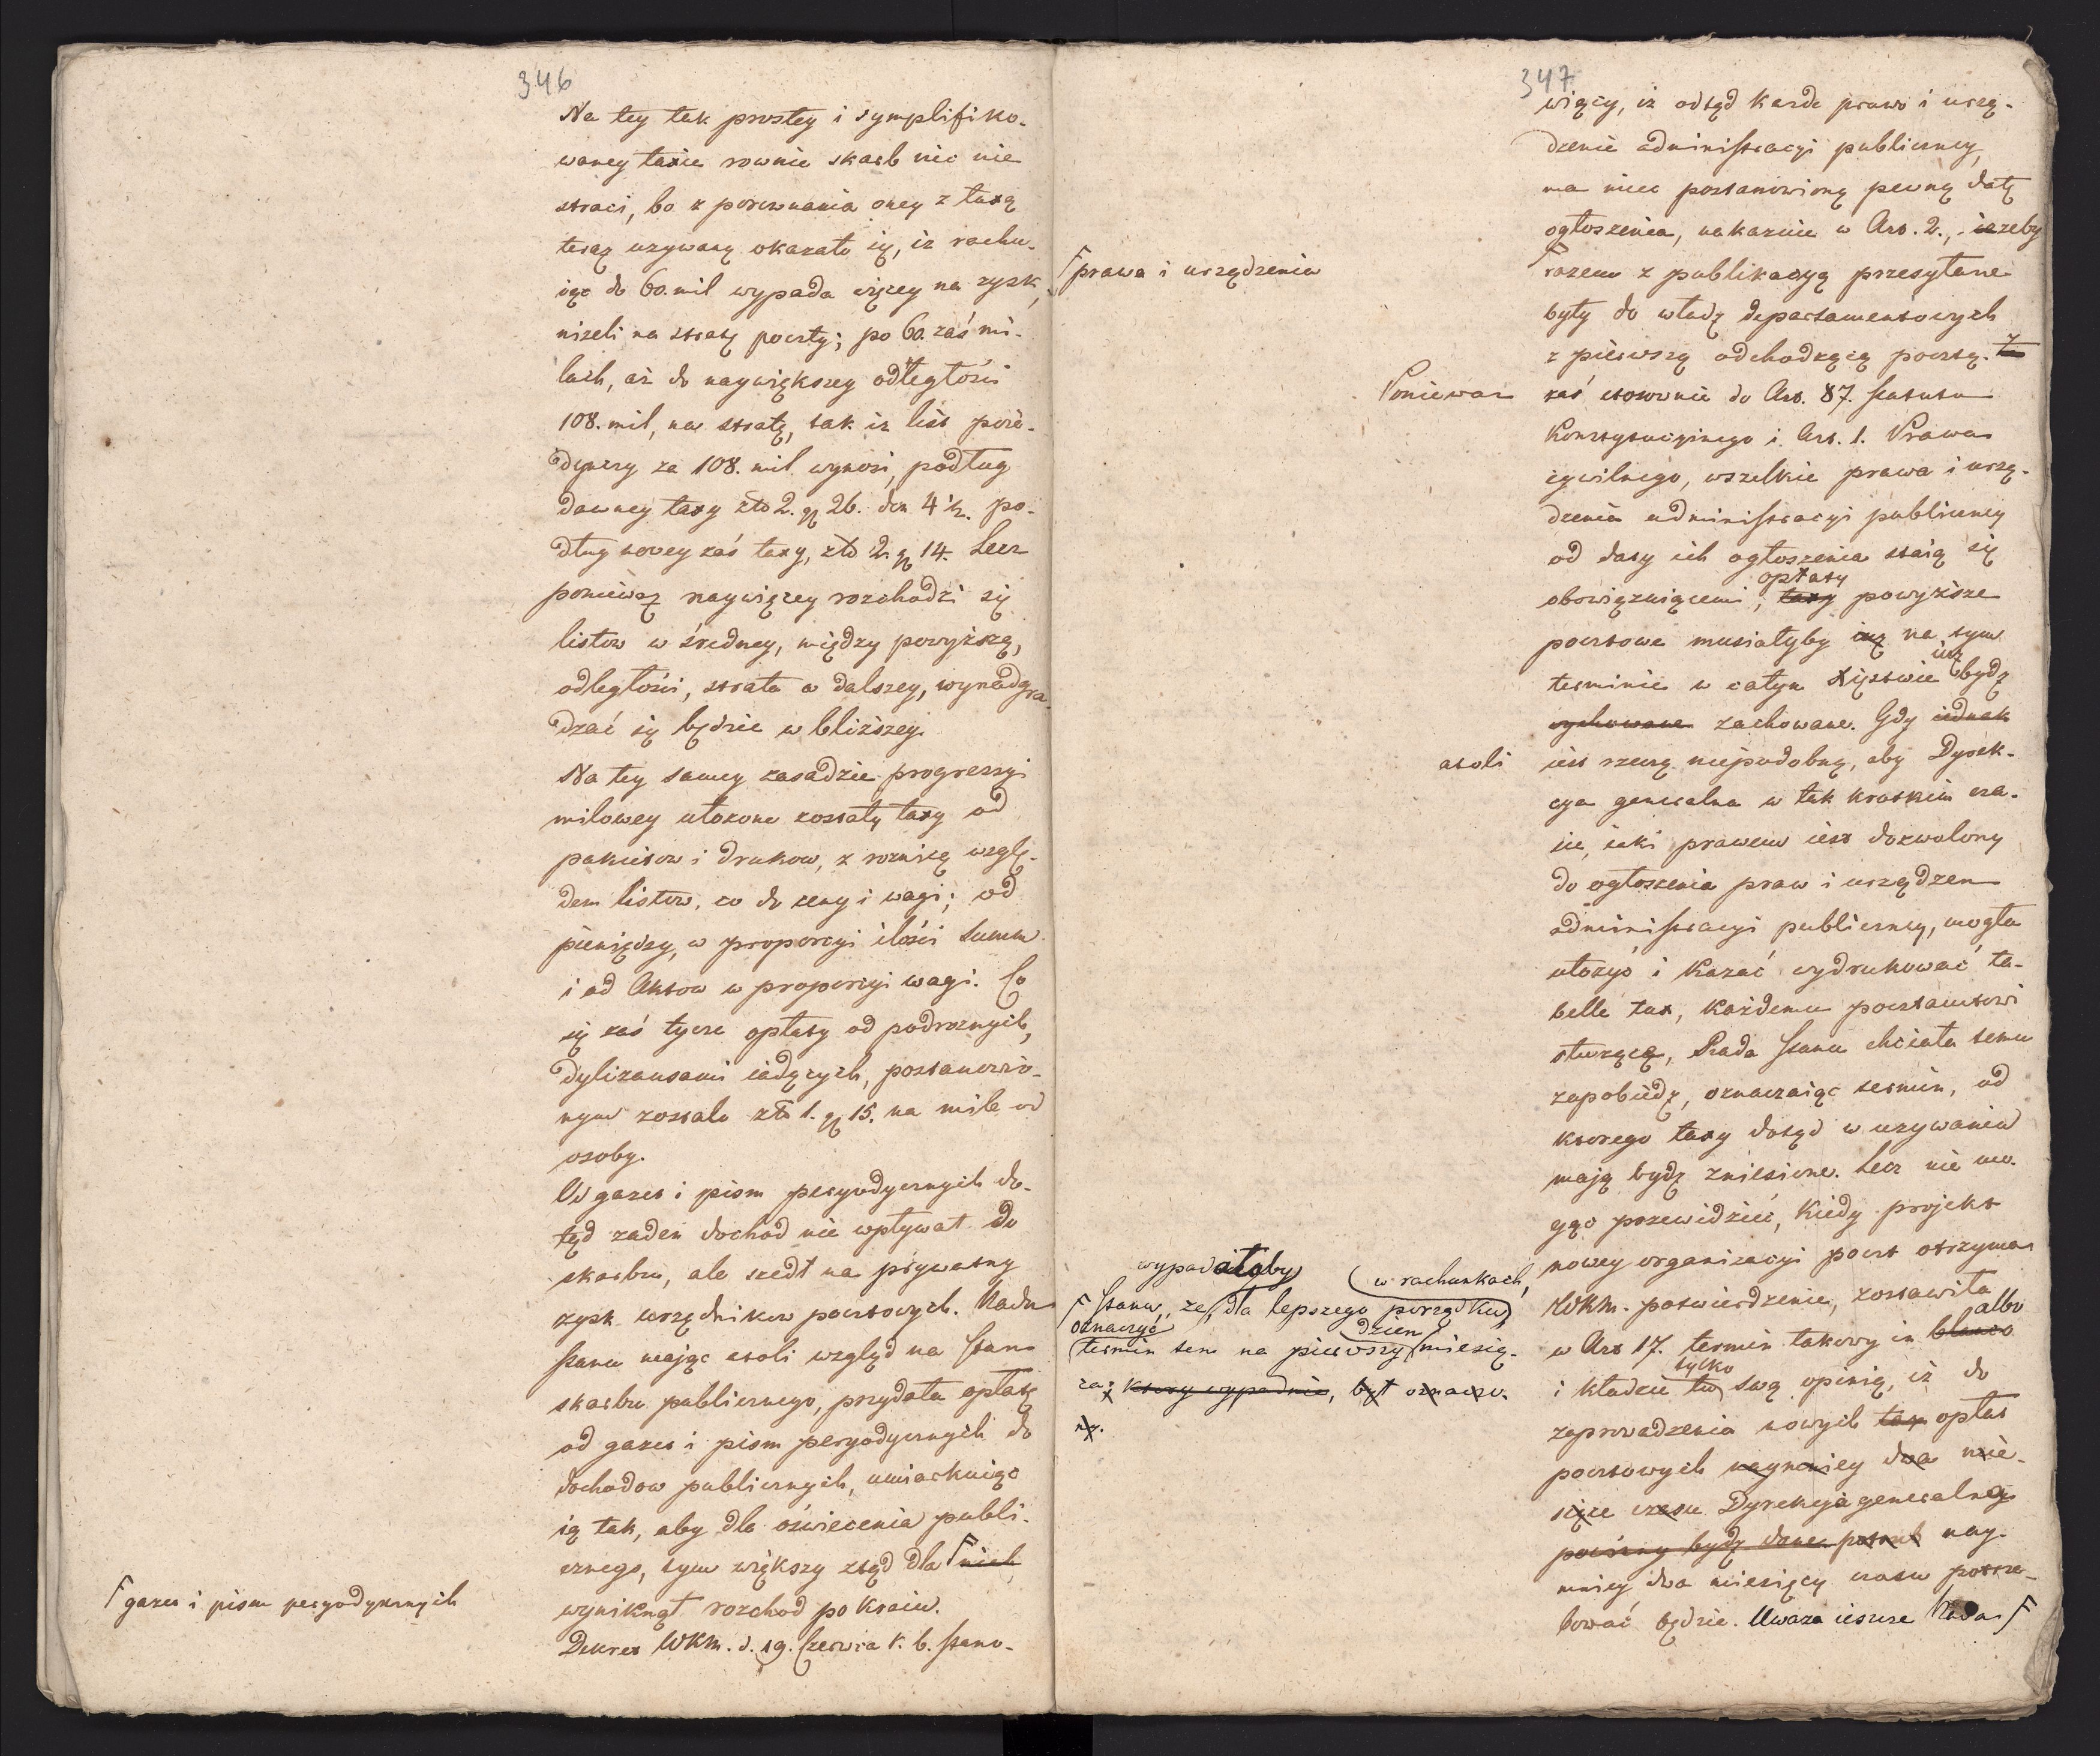 346
Na tey tak prostey i symplifiko-
waney taxie rownie skarb nic nie
straci, bo z porownania oney z taxą
teraz uzywaną okazało się, iż rachu-
iąc do 60. mil wypada więcey na zysk,
niżeli na stratę poczty; po 60. zaś mi-
lach, aż do naywiększey odległości
108. mil, na stratę, tak iż list poie-
dynczy za 108. mil wynosi, podług
dawney taxy złto 2. gr 26. den 4½. po-
dług nowey zaś taxy, złto 2. gr 14. Lecz
ponieważ naywięcey rozchodzi się
listow w średniey, między powyższą,
odległości, strata w dalszey, wynadgra-
dzać się będzie w bliższey.
Na tey samey zasadzie progressyi
milowey ułożone zostały taxy od
pakietow i drukow, z roznicą wzglę-
dem listow, co do ceny i wagi; od
pieniędzy, w proporcyi ilości summ
i od Aktow w proporcyi wagi. Co
się zaś tycze opłaty od podroznych,
dyliżansami iadących, postanowio-
nym zostało złto 1. gr 15. na milę od
osoby.
Od gazet i pism peryodycznych do-
tąd żaden dochod nie wpływał do
skarbu, ale szedł na prywatny
zysk urzędnikow pocztowych. Rada
Stanu maiąc atoli wzgląd na stan
skarbu publicznego, przydała opłatę
od gazet i pism peryodycznych do
dochodow publicznych, umiarkuiąc
ią tak, aby dla oświecenia publi-
cznego, tym większy ztąd dla F nich
wyniknął rozchod po kraiu.
F gazet i pism peryodycznych
Dekret WKM. d. 19. Czerwca r. b. stano-
347
wiący, iż odtąd każde prawo i urzą-
dzenie administracyi publiczney,
ma mieć postanowioną pewną datę
ogłoszenia, nakazuie w Art. 2., iżeby
F prawa i urządzenia
F razem z publikacyą przesyłane
były do władz departamentowych
z pierwszą odchodzącą pocztą. Ta
Poniewaz
zaś stosownie do Art. 87. statutu
Konstytucyinego i Art. 1. Prawa
cywilnego, wszelkie prawa i urzą-
dzenia administracyi publiczney
od daty ich ogłoszenia staią się
opłaty
obowięzuiącemi, taxy powyższe
pocztowe musiałyby iuż na tym
iuż
terminie w całym Xięstwie bydź
zachowane. Gdy iednak
atoli
iest rzeczą niepodobną, aby Dyrek-
cya generalna w tak krotkim cza-
sie, iaki prawem iest dozwolony
do ogłoszenia praw i urządzen
administracyi publiczney, mogła
ułożyć i kazać wydrukować ta-
belle tax, każdemu pocztamtowi
służącą, Rada Stanu chciała temu
zapobiedz, oznaczaiąc termin, od
ktorego taxy dotąd w uzywaniu
maią bydź zniesione. Lecz nie mo-
gąc przewidzieć, kiedy projekt
nowey organizacyi poczt otrzyma
WKM. potwierdzenie, zostawiła
albo
w Art 17. termin takowy in blanco
tylko
i kładzie tu swą opinią, iż do
zaprowadzenia nowych tax opłat
pocztowych naymniey dwa mie-
siące czasu Dyrekcyia generalney
powinny bydź dane nay-
mniey dwa miesięcy czasu potrze-
bować będzie. Uwaza ieszcze Rada F
wypadałoby
w rachunkach,
F Stanu, że dla lepszego porządku
oznaczyć dzien
termin ten na pierwszy miesią-
ca; ktory wypadnie, był oznaczo-
ny.